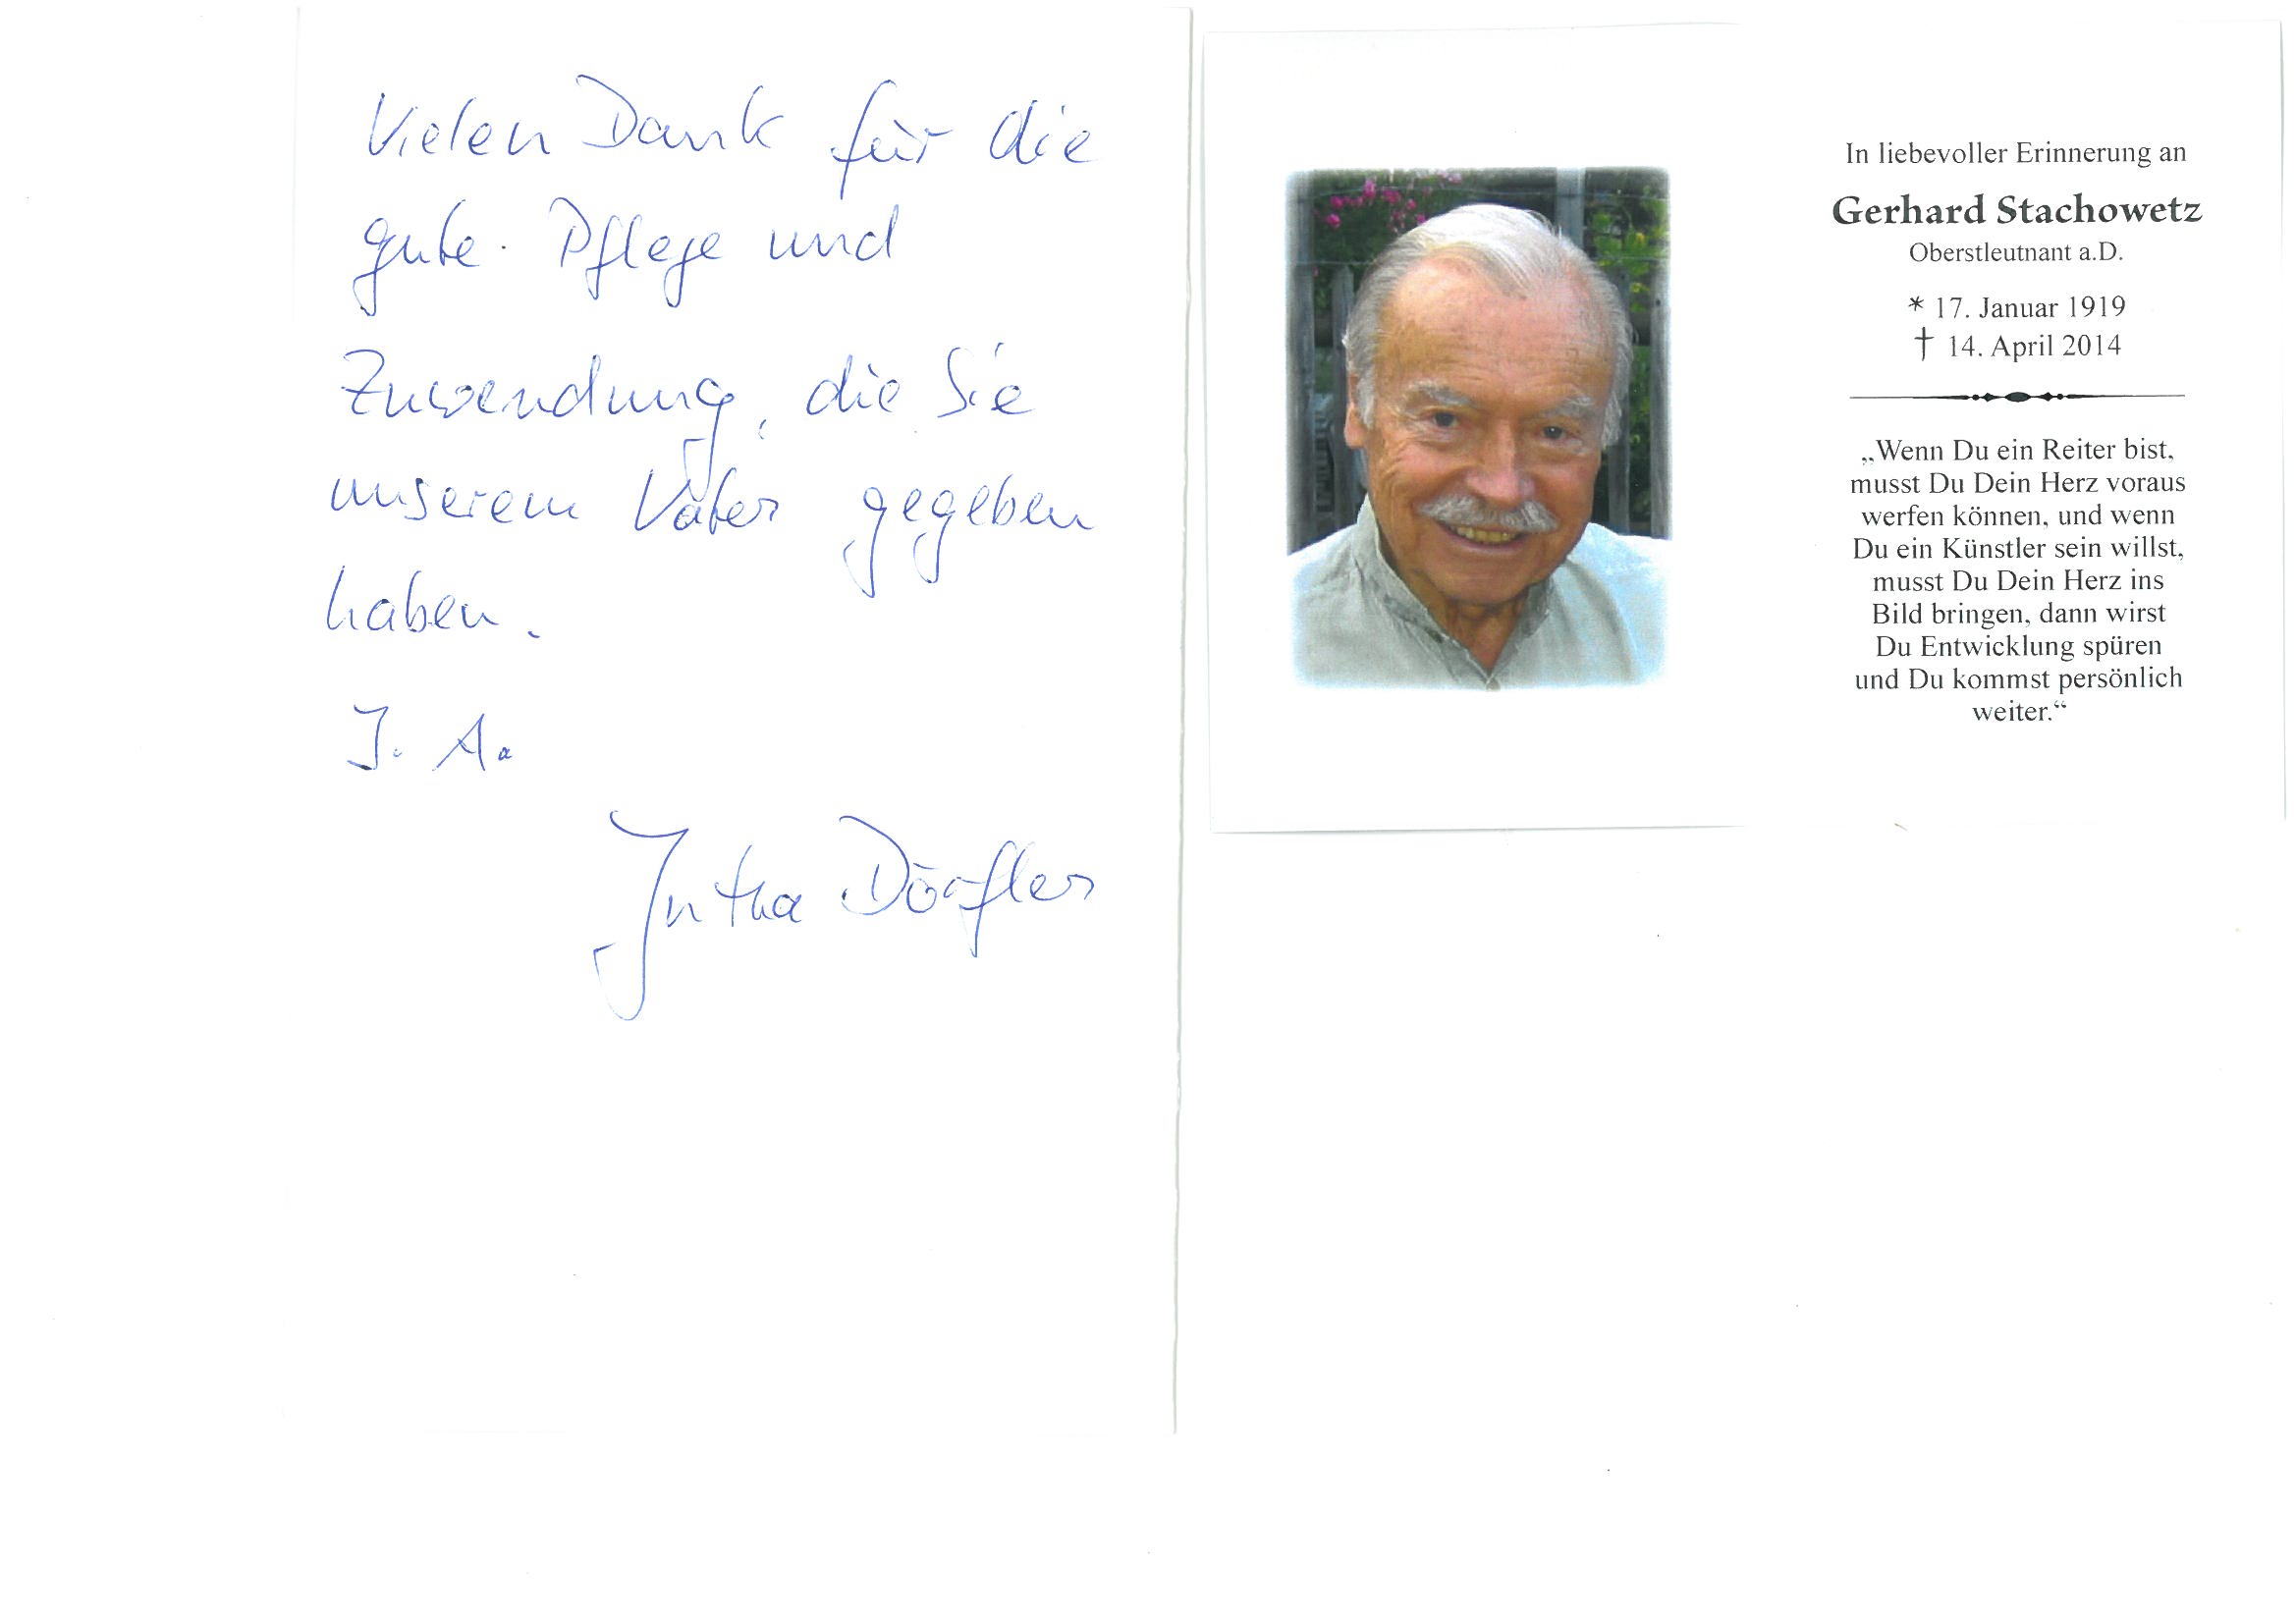 Vielen Dank für die
gute Pflege und
Zuwendung, die Sie
unserem Vater gegeben
haben.
I. A.
Jutha Dörfler
In liebevoller Erinnerung an
Gerhard Stachowetz
Oberstleutnant a.D.
* 17. Januar 1919
† 14. April 2014
„Wenn Du ein Reiter bist,
musst Du Dein Herz voraus
werfen können, und wenn
Du ein Künstler sein willst,
musst Du Dein Herz ins
Bild bringen, dann wirst
Du Entwicklung spüren
und Du kommst persönlich
weiter.“